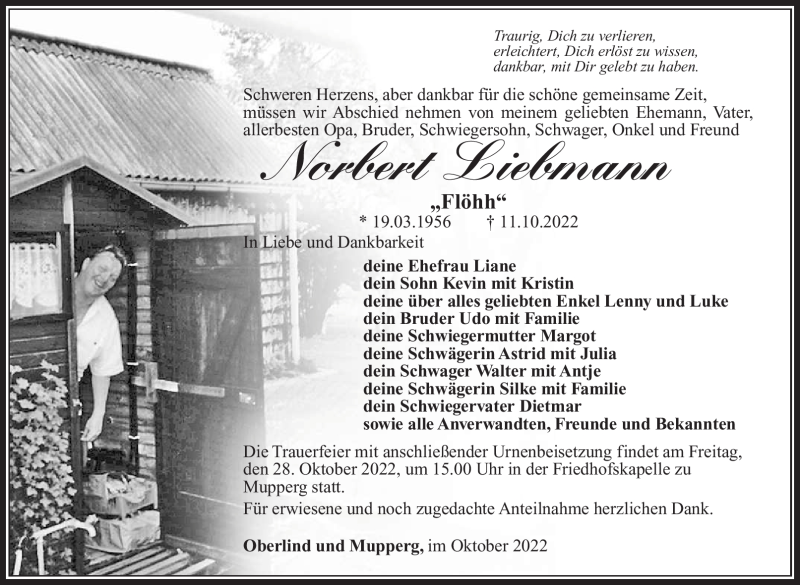 Traurig, Dich zu verlieren,
erleichtert, Dich erlöst zu wissen,
dankbar, mit Dir gelebt zu haben.
Schweren Herzens, aber dankbar für die schöne gemeinsame Zeit,
müssen wir Abschied nehmen von meinem geliebten Ehemann, Vater,
allerbesten Opa, Bruder, Schwiegersohn, Schwager, Onkel und Freund
Norbert Liebmann
„Flöhh“
* 19.03.1956 † 11.10.2022
In Liebe und Dankbarkeit
deine Ehefrau Liane
dein Sohn Kevin mit Kristin
deine über alles geliebten Enkel Lenny und Luke
dein Bruder Udo mit Familie
deine Schwiegermutter Margot
deine Schwägerin Astrid mit Julia
dein Schwager Walter mit Antje
deine Schwägerin Silke mit Familie
dein Schwiegervater Dietmar
sowie alle Anverwandten, Freunde und Bekannten
Die Trauerfeier mit anschließender Urnenbeisetzung findet am Freitag,
den 28. Oktober 2022, um 15.00 Uhr in der Friedhofskapelle zu
Mupperg statt.
Für erwiesene und noch zugedachte Anteilnahme herzlichen Dank.
Oberlind und Mupperg, im Oktober 2022